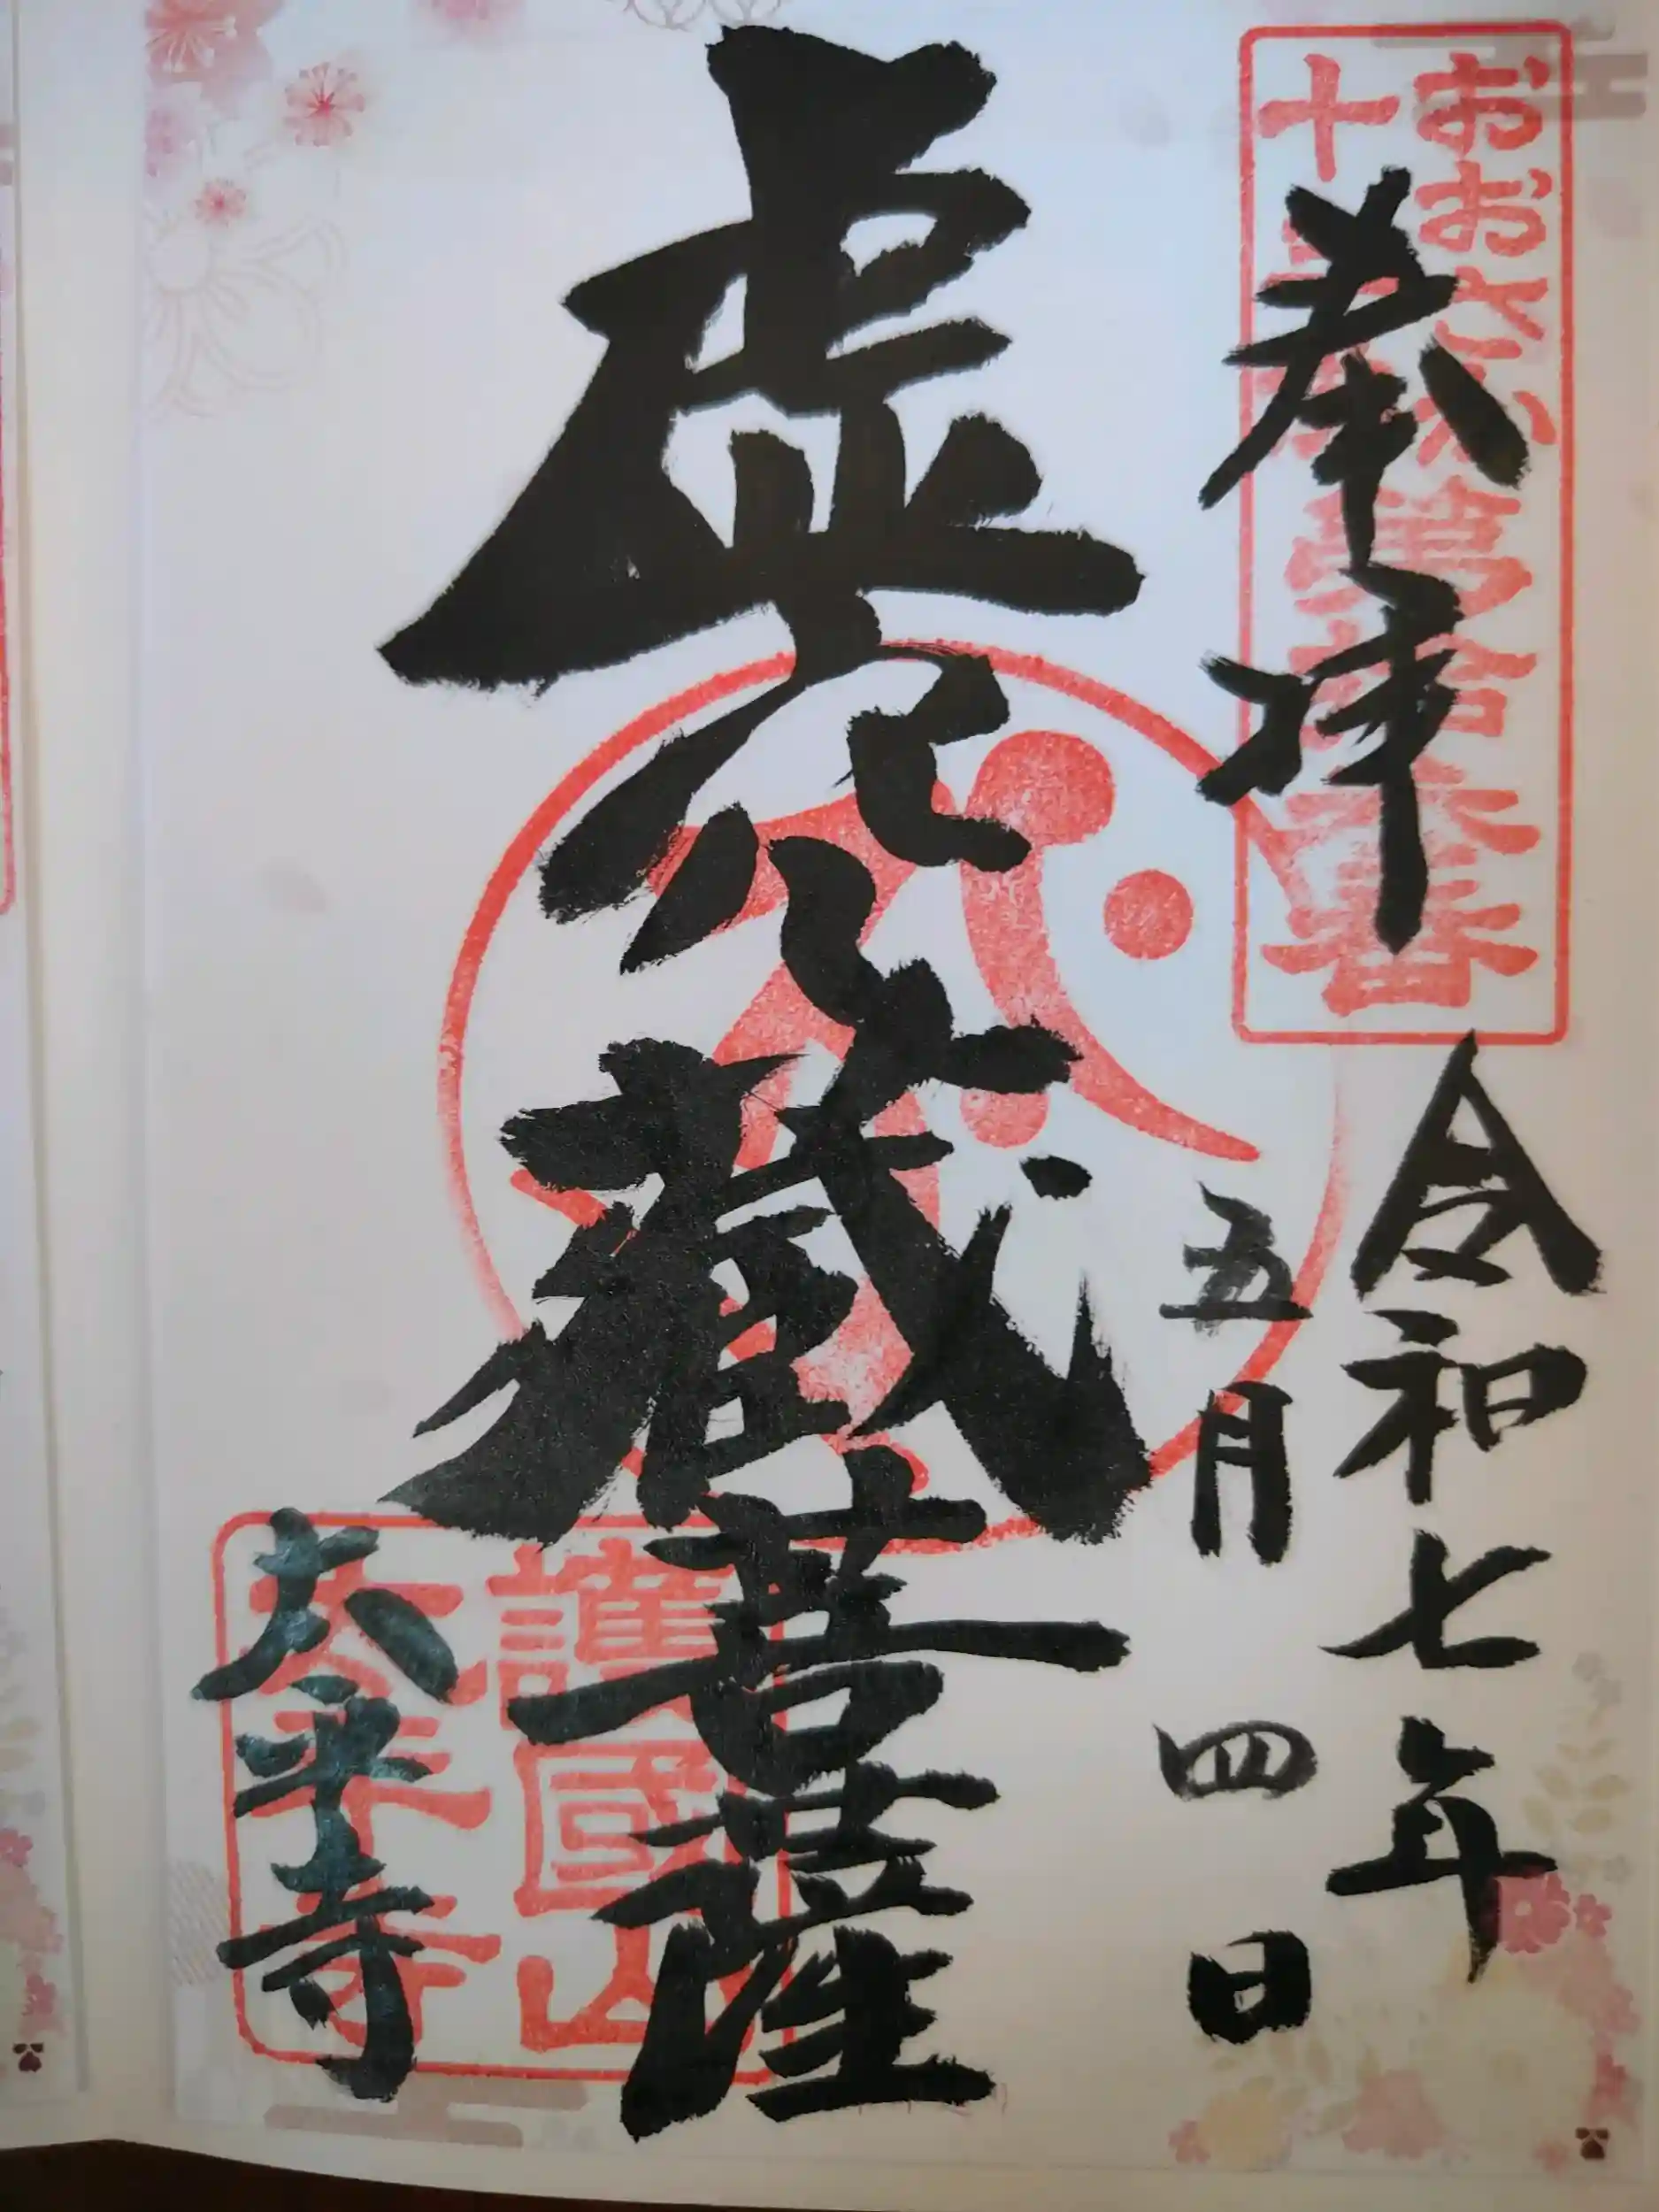 おおさか
十三佛
第拾参番
奉拝
令和七年
五月四日
虚空蔵菩薩
護國山
太平寺
太平寺